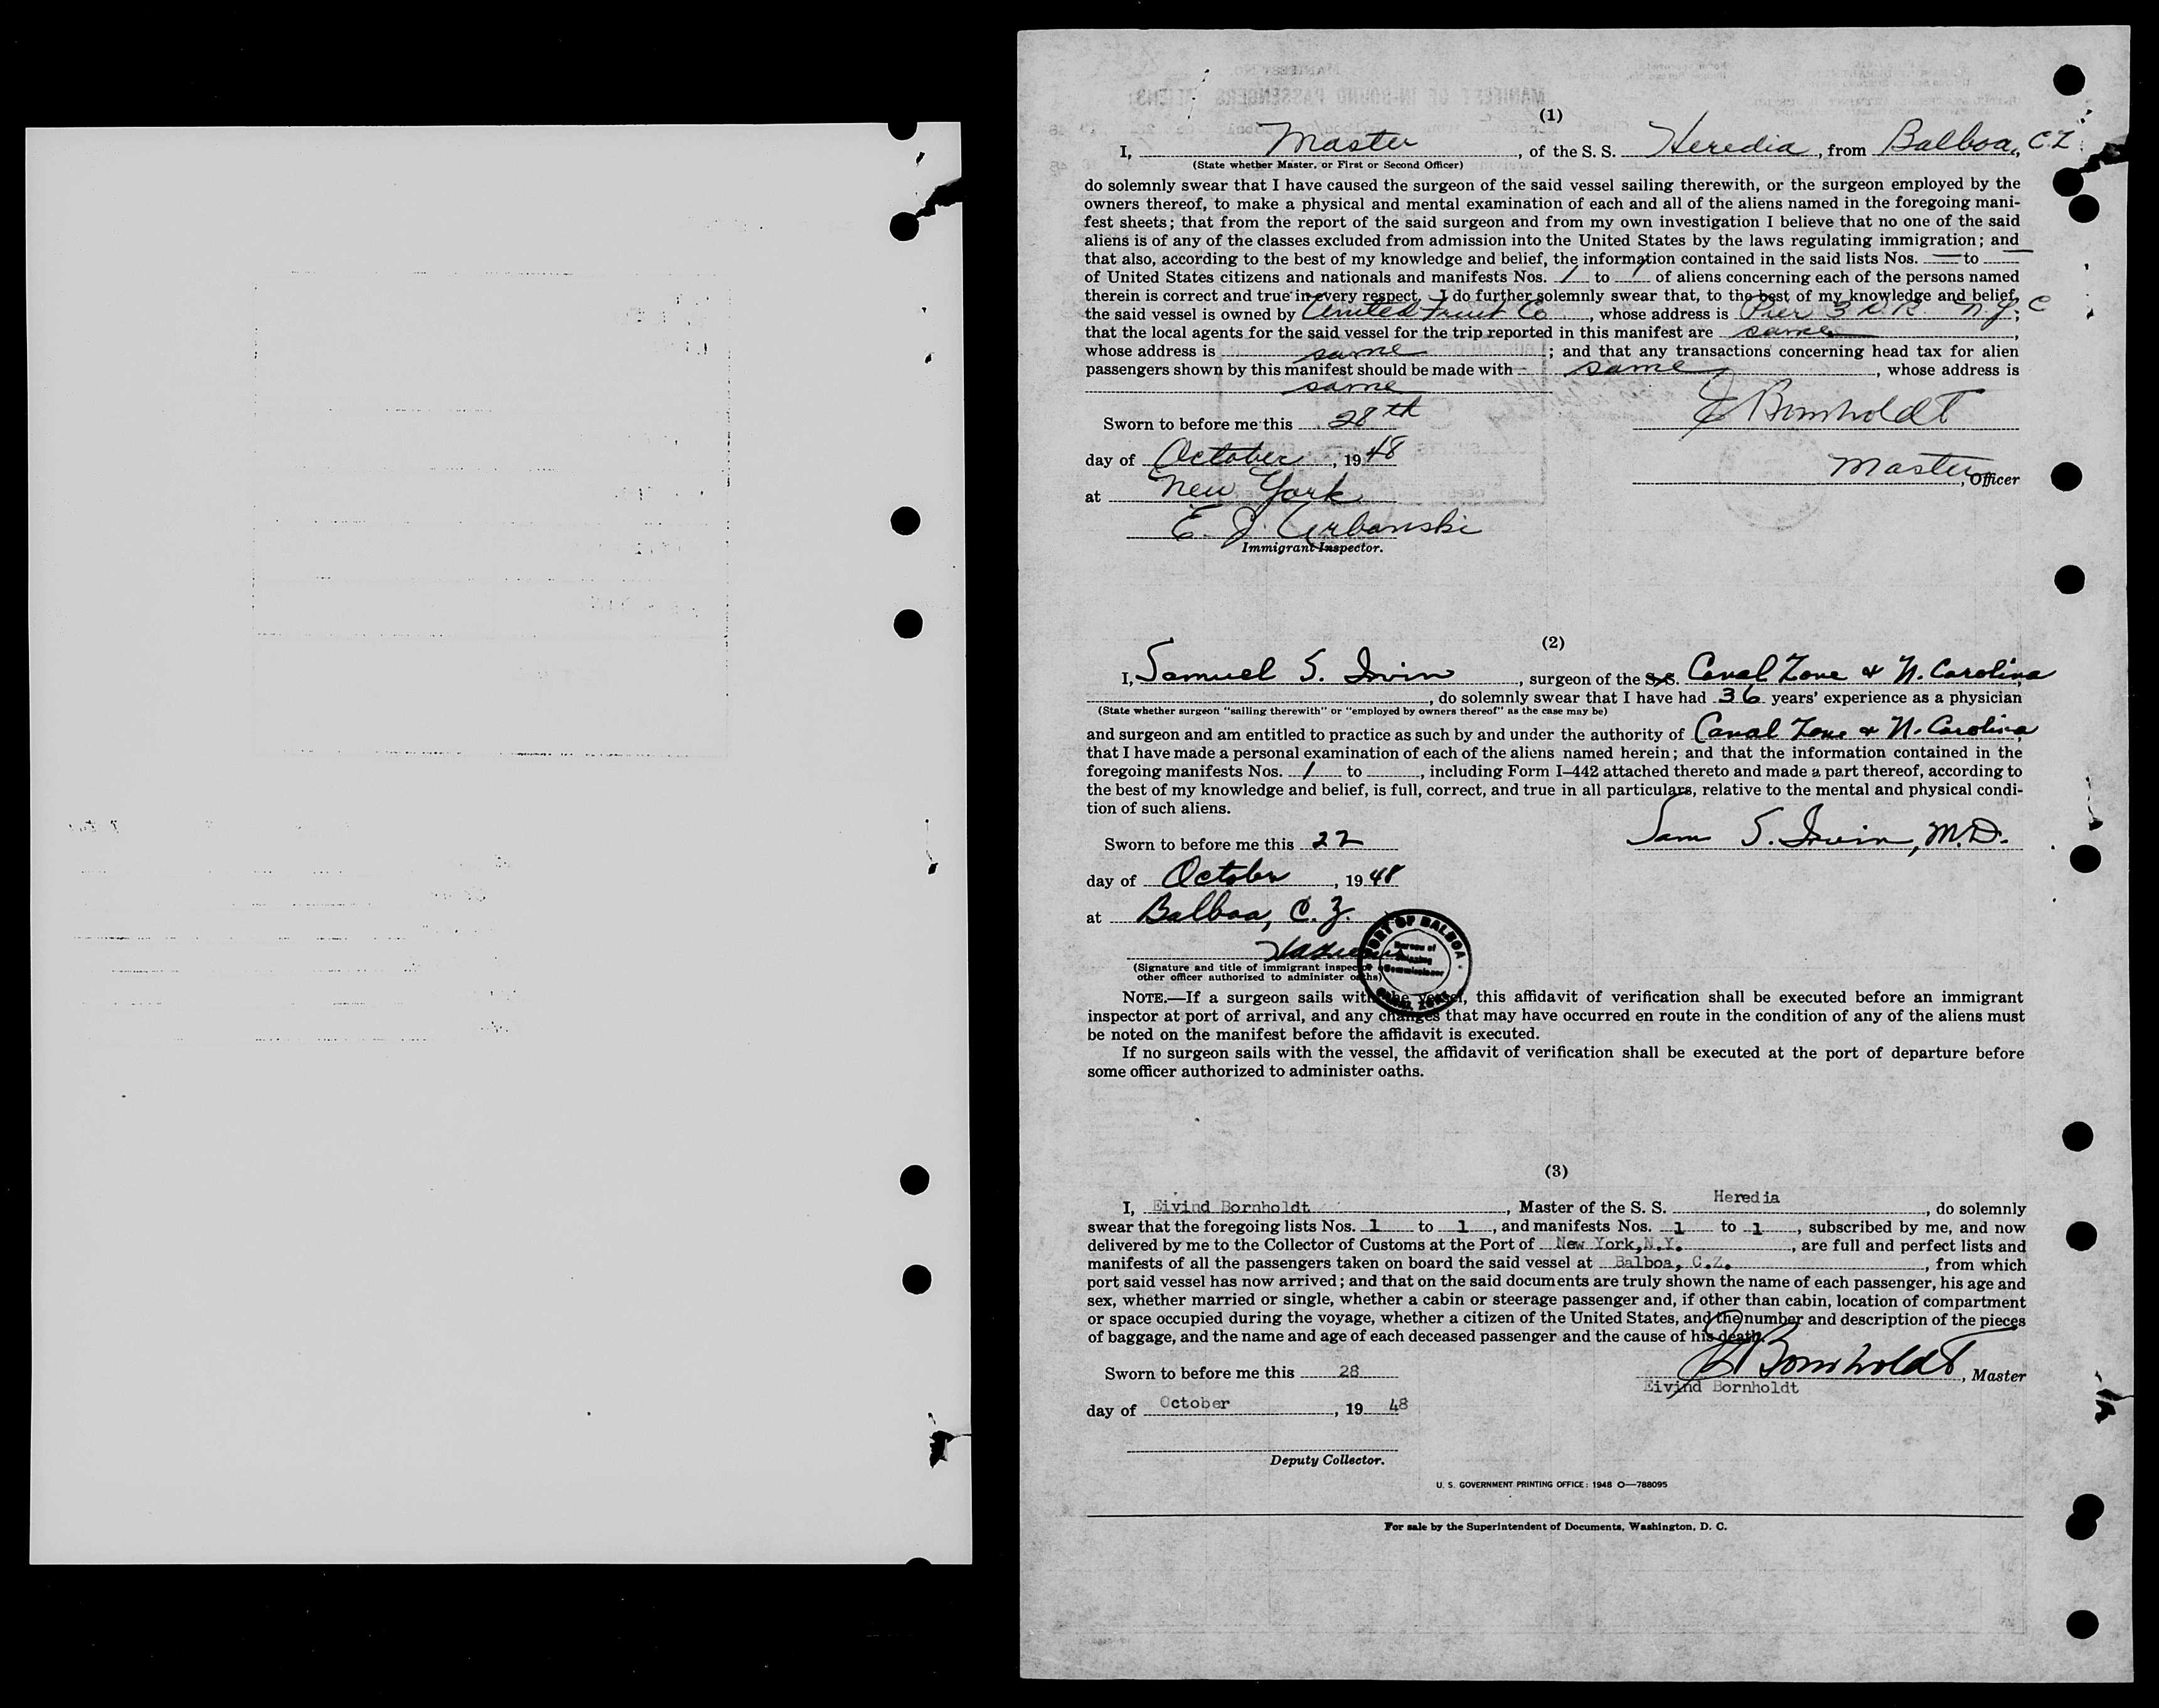 (1)
I, Master, of the S. S. Heredia, from Balboa, C.Z.
(State whether Master, or First or Second Officer)
do solemnly swear that I have caused the surgeon of the said vessel sailing therewith, or the surgeon employed by the
owners thereof, to make a physical and mental examination of each and all of the aliens named in the foregoing mani-
fest sheets; that from the report of the said surgeon and from my own investigation I believe that no one of the said
aliens is of any of the classes excluded from admission into the United States by the laws regulating immigration; and
that also, according to the best of my knowledge and belief, the information contained in the said lists Nos. — to —
of United States citizens and nationals and manifests Nos. 1 to 1 of aliens concerning each of the persons named
therein is correct and true in every respect. I do further solemnly swear that, to the best of my knowledge and belief,
the said vessel is owned by United Fruit Co, whose address is Pier 3 N.R. N.Y.C;
that the local agents for the said vessel for the trip reported in this manifest are same,
whose address is same; and that any transactions concerning head tax for alien
passengers shown by this manifest should be made with same, whose address is
same
Sworn to before me this 28th
E Bornholdt
day of October, 1948
Master, Officer
at New York
E. J. Urbanski
Immigrant Inspector.
(2)
I, Samuel S. Irvin, surgeon of the S.S. Canal Zone & N. Carolina
, do solemnly swear that I have had 36 years' experience as a physician
(State whether surgeon "sailing therewith" or "employed by owners thereof" as the case may be)
and surgeon and am entitled to practice as such by and under the authority of Canal Zone & N. Carolina
that I have made a personal examination of each of the aliens named herein; and that the information contained in the
foregoing manifests Nos. 1 to , including Form I–442 attached thereto and made a part thereof, according to
the best of my knowledge and belief, is full, correct, and true in all particulars, relative to the mental and physical condi-
tion of such aliens.
Sworn to before me this 22
Sam S. Irvin, M.D.
day of October, 1948
at Balboa, C.Z.
PORT OF BALBOA
Bureau of
Shipping
Commissioner
CANAL ZONE
(Signature and title of immigrant inspector or
other officer authorized to administer oaths)
NOTE.—If a surgeon sails with the vessel, this affidavit of verification shall be executed before an immigrant
inspector at port of arrival, and any changes that may have occurred en route in the condition of any of the aliens must
be noted on the manifest before the affidavit is executed.
If no surgeon sails with the vessel, the affidavit of verification shall be executed at the port of departure before
some officer authorized to administer oaths.
(3)
I, Eivind Bornholdt, Master of the S. S. Heredia, do solemnly
swear that the foregoing lists Nos. 1 to 1, and manifests Nos. 1 to 1, subscribed by me, and now
delivered by me to the Collector of Customs at the Port of New York, N.Y., are full and perfect lists and
manifests of all the passengers taken on board the said vessel at Balboa, C.Z., from which
port said vessel has now arrived; and that on the said documents are truly shown the name of each passenger, his age and
sex, whether married or single, whether a cabin or steerage passenger and, if other than cabin, location of compartment
or space occupied during the voyage, whether a citizen of the United States, and the number and description of the pieces
of baggage, and the name and age of each deceased passenger and the cause of his death.
Sworn to before me this 28
E Bornholdt, Master
Eivind Bornholdt
day of October, 1948
Deputy Collector.
U. S. GOVERNMENT PRINTING OFFICE: 1948 O—788095
For sale by the Superintendent of Documents, Washington, D. C.